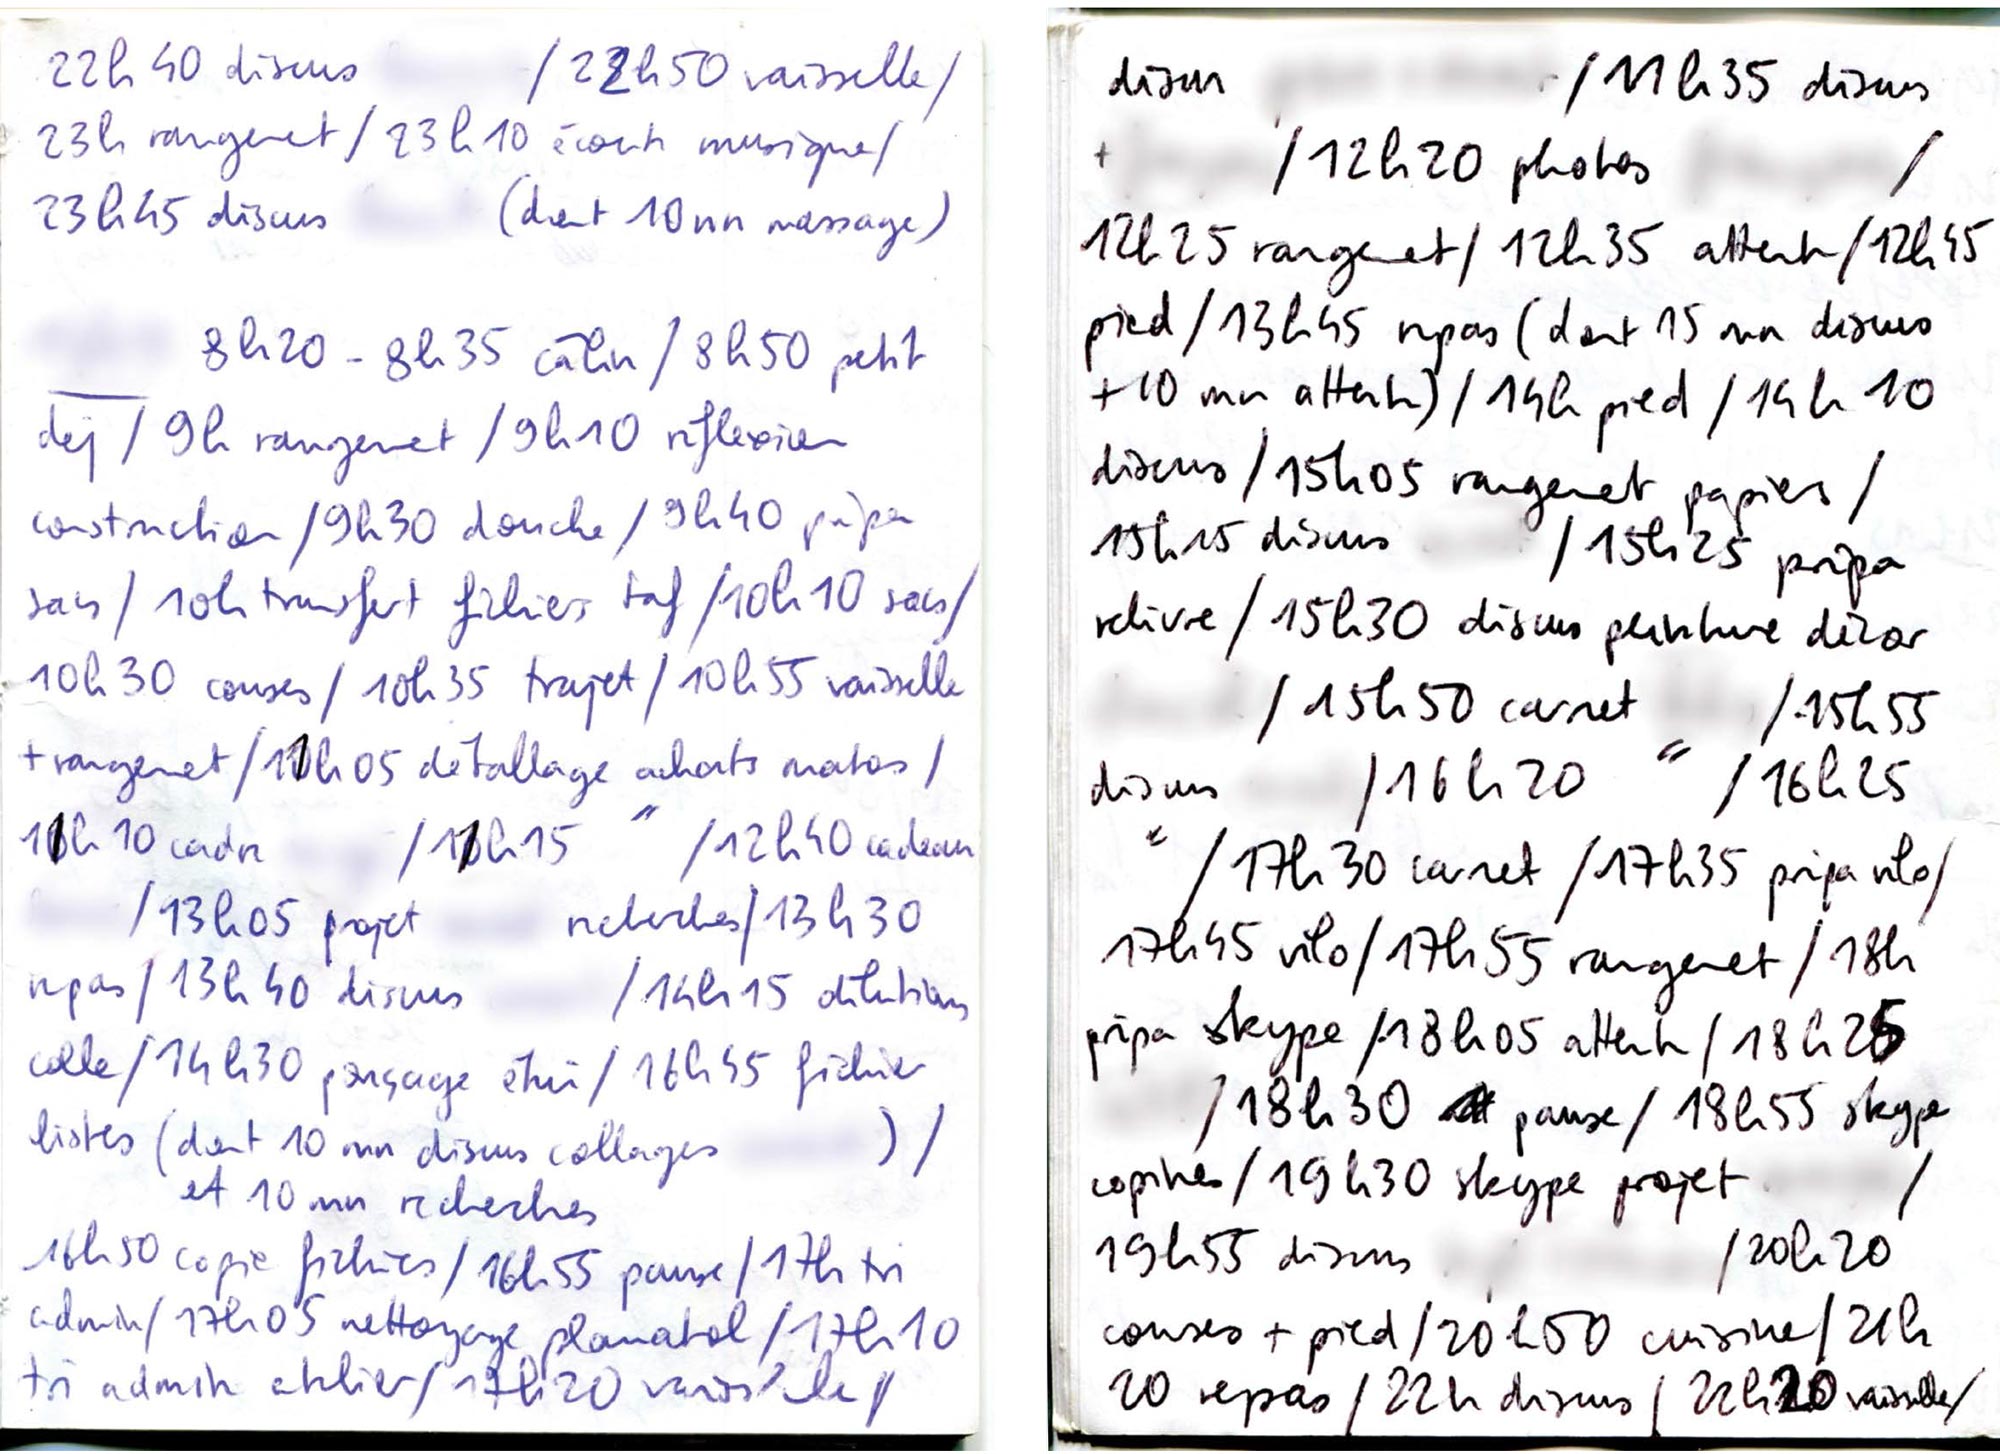 22h40 discus / 22h50 vaisselle/
23h rangemet / 23h10 écoute musique/
23h45 discus (dont 10mn massage)
8h20 - 8h35 câlin / 8h50 petit
déj / 9h rangemet / 9h10 réflexion
construction / 9h30 douche / 9h40 prépa
sacs / 10h transfert fichiers taf / 10h10 sacs/
10h30 courses / 10h35 trajet / 10h55 vaisselle
+ rangemet / 11h05 détallage achats matos /
11h10 cadre / 11h15 " / 12h40 cadeau
/ 13h05 projet recherches / 13h30
repas / 13h40 discus / 14h15 dilution
colle / 14h30 ponçage étui / 16h45 fichier
listes (dont 10 mn discus collages ) /
et 10 mn recherches
16h50 copie fichiers / 16h55 pause / 17h tri
admin / 17h05 nettoyage planatol / 17h10
tri admin atelier / 17h20 vaisselle /
discus / 11h35 discus
+ / 12h20 photos /
12h25 rangemet / 12h35 attente / 12h45
pied / 13h45 repas (dont 15 mn discus
+ 10 mn attente) / 14h pied / 14h10
discus / 15h05 rangemet papiers /
15h15 discus / 15h25 prépa
relivre / 15h30 discus peinture décor
/ 15h50 carnet / 15h55
discus / 16h20 " / 16h25
" / 17h30 carnet / 17h35 prépa vélo/
17h45 vélo / 17h55 rangemet / 18h
prépa skype / 18h05 attente / 18h25
/ 18h30 pause / 18h55 skype
copines / 19h30 skype projet /
19h55 discus / 20h20
courses + pied / 20h50 cuisine / 21h
20 repas / 22h discus / 22h20 vaisselle/